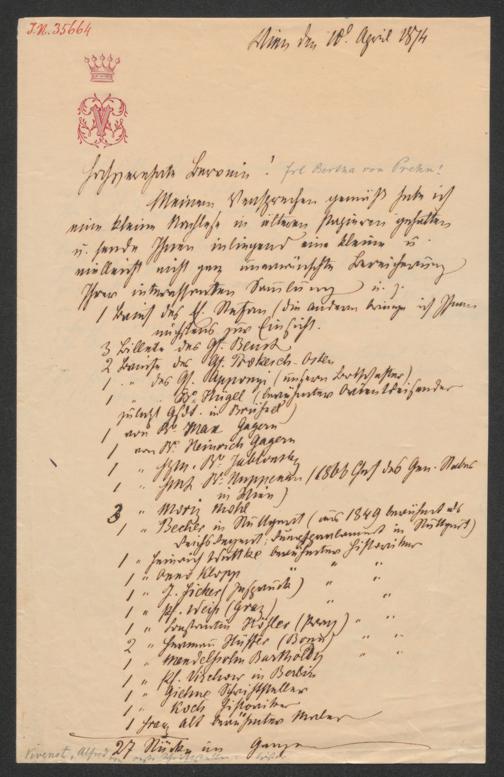 J.N. 35664
Wien den 18t April 1874
V
Hochverehrte Baronin! Frl Bertha von
Meinem Versprechen gemäß habe ich
eine kleine Nachlese in älteren Papieren gehalten
u. sende Ihnen inliegend eine kleine u.
vielleicht nicht ganz unerwünschte Bereicherung
Ihrer interessanten Sammlung u. z.
1 Brief des (die andern bringe ich Ihnen
nächstens zur Einsicht.
3 Billete des Gf. Beust
2 Briefe des Gf. Prokesch-Osten
1 " des Gf. Apponyi (unseren Botschafter)
1 " Br. Hügel (berühmter Orientreisender
zuletzt Gsdt. in Brüssel)
1 von Br. Max Gagern
1 von Br. Heinrich Gagern
1 " Br. Jablonsky
1 " Br. (1866 Chef des Gen. Stabes
in Wien)
3 " Moriz Mohl
1 " Becher in Stuttgart (aus 1849 berühmt als
in Stuttgart)
1 " Heinrich Wuttke berühmter Historiker
1 " Onno Klopp " "
1 " J. Ficker (Innsbruck) " "
1 " Pf. Weiß (Graz) " "
1 " Constantin Höfler (Prag) " "
2 " Herman Hüffer (Bonn) " "
1 " Mendelssohn Bartholdy " "
1 " Pf. Virchow in Berlin
1 " Schriftsteller
1 " Koch Historiker
1 Frz. Alt berühmter Maler
27 Stücke im Ganzen
Vivenot, Alfred